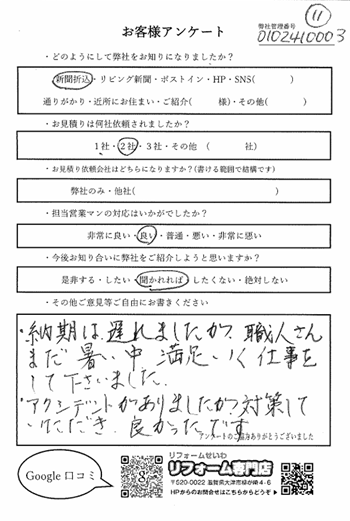 ⑪
お客様アンケート
弊社管理番号
0102410003
・どのようにして弊社をお知りになりましたか？
新聞折込・リビング新聞・ポストイン・HP・SNS(　　　)
通りがかり・近所にお住まい・ご紹介(　　　様)・その他(　　　)
・お見積りは何社依頼されましたか？
1社・2社・3社・その他 (　　　社)
・お見積り依頼会社はどちらになりますか？(書ける範囲で結構です)
弊社のみ・他社(　　　)
・担当営業マンの対応はいかがでしたか？
非常に良い・良い・普通・悪い・非常に悪い
・今後お知り合いに弊社をご紹介しようと思いますか？
是非する・したい・聞かれれば・したくない・絶対しない
・その他ご意見等ご自由にお書きください
・納期は遅れましたが、職人さん
まだ暑い中満足いく仕事を
して下さいました。
・アクシデントがありましたが対策して
いただき、良かったです
アンケートのご協力ありがとうございました
Google 口コミ
リフォームせいわ
リフォーム専門店
〒520-0022 滋賀県大津市柳が崎4-6
HPからのお問合せはこちらからどうぞ